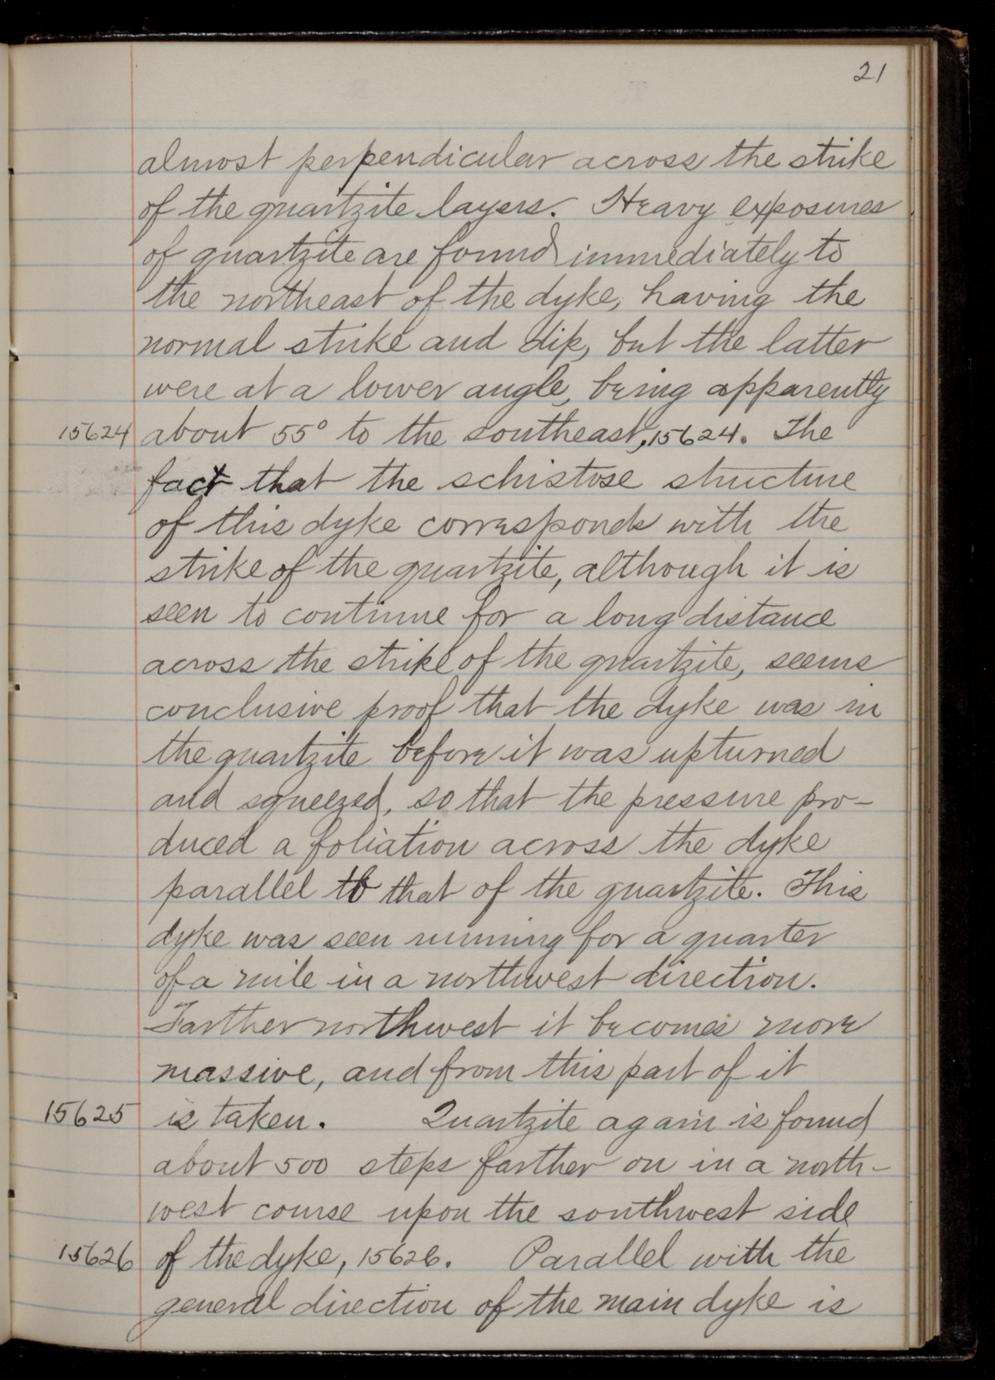 21
almost perpendicular across the strike
of the quartzite layers. Heavy exposures
of quartzite are found immediately to
the northeast of the dyke, having the
normal strike and dip, but the latter
were at a lower angle, being apparently
15624 about 55° to the southeast, 15624. The
fact that the schistose structure
of this dyke corresponds with the
strike of the quartzite, although it is
seen to continue for a long distance
across the strike of the quartzite, seems
conclusive proof that the dyke was in
the quartzite before it was upturned
and squeezed, so that the pressure pro-
duced a foliation across the dyke
parallel to that of the quartzite. This
dyke was seen running for a quarter
of a mile in a northwest direction.
Farther northwest it becomes more
massive, and from this part of it
15625 is taken. Quartzite again is found
about 500 steps farther on in a north-
west course upon the southwest side
15626 of the dyke, 15626. Parallel with the
general direction of the main dyke is